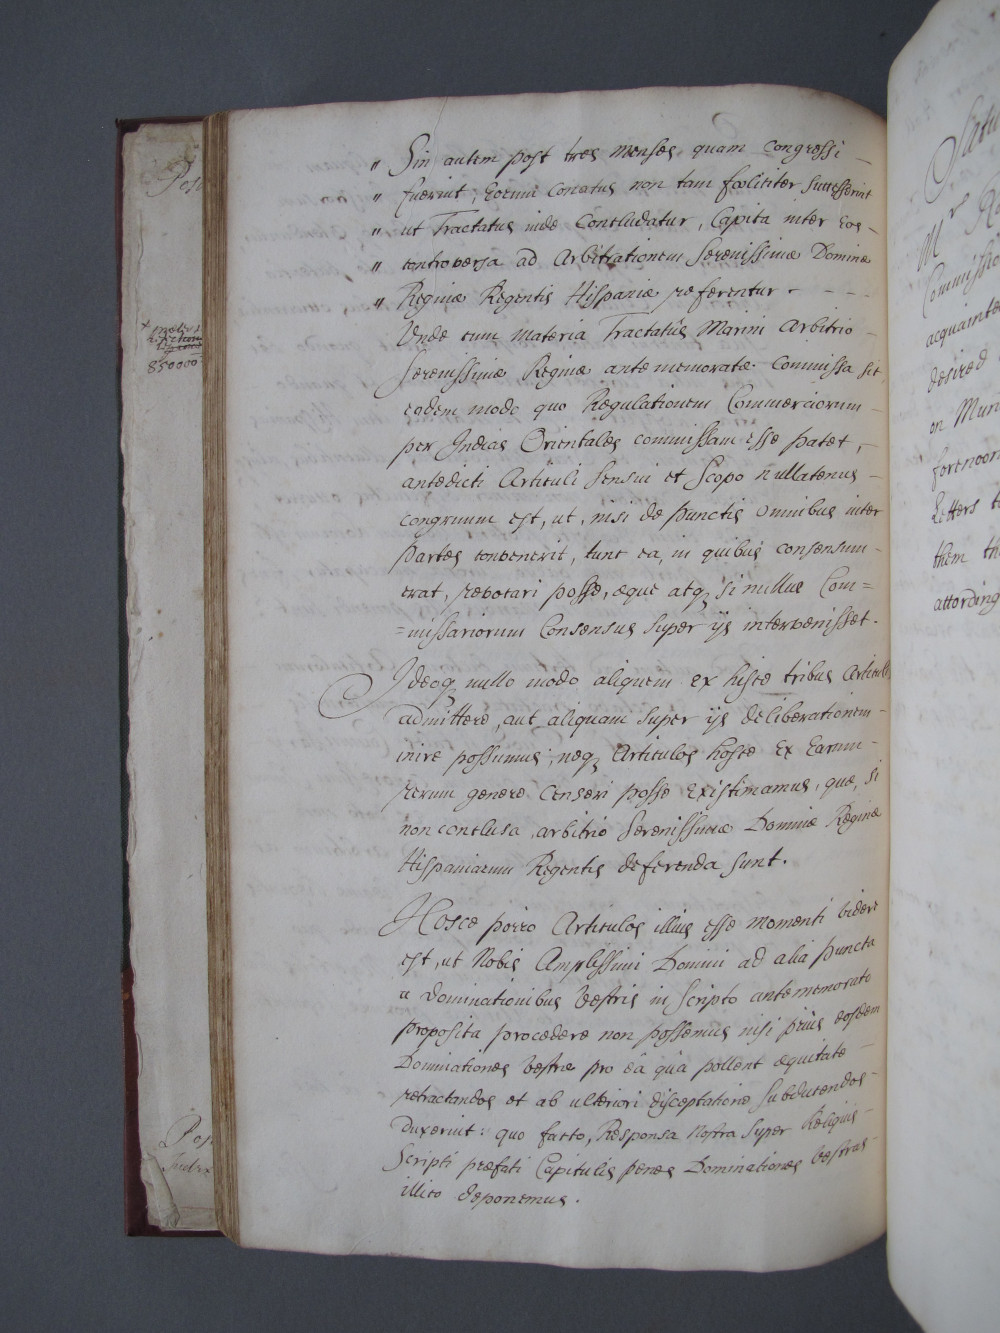 " Sin autem post tres menses quam congressi
" fuerint, Eorum Conatus non tam fœliciter successerint
" ut Tractatus inde Concludatur, Capita inter Eos
" controversa ad Arbitrationem Serenissimæ Dominæ
" Reginæ Regentis Hispaniæ referentur
Unde cum materia Tractatûs Marini Arbitrio
Serenissimæ Reginæ antememoratæ Commissa sit,
eodem modo quo Regulationem Commerciorum
per Indias Orientales commissam esse patet,
antedicti Articuli Sensui et Scopo nullatenus
congruum est, ut, nisi de punctis omnibus inter
Partes convenerit, tunc ea, in quibus consensum
erat, revocari posse, æque atq si nullus Com=
=missariorum Consensus super ijs intervenisset.
Ideoq nullo modo aliquem ex hisce tribus Articulis
admittere, aut aliquam super ijs deliberationem
inire possumus; neq Articulos hosce Ex Earum
rerum genere Censeri posse Existimamus, quæ, si
non conclusa, arbitrio Serenissimæ Dominæ Reginæ
Hispaniarum Regentis deferenda sunt.
Hosce porro Articulos illius esse momenti videre
est, ut Nobis Amplissimi Domini ad alia puncta
a Dominationibus Vestris in Scripto antememorato
proposita procedere non possemus nisi priùs eosdem
Dominationes Vestræ pro eâ quâ pollent æquitate
retractandos et ab ulteriori disceptatione subducendos
duxerint: quo facto, Responsa Nostra super Reliquis
Scripti præfati Capitulis penes Dominationes Vestras
illico deponemus.
850000
Mr
Commissio
acquainte
desired
on Mun
forenoon
Letters to
them th
according